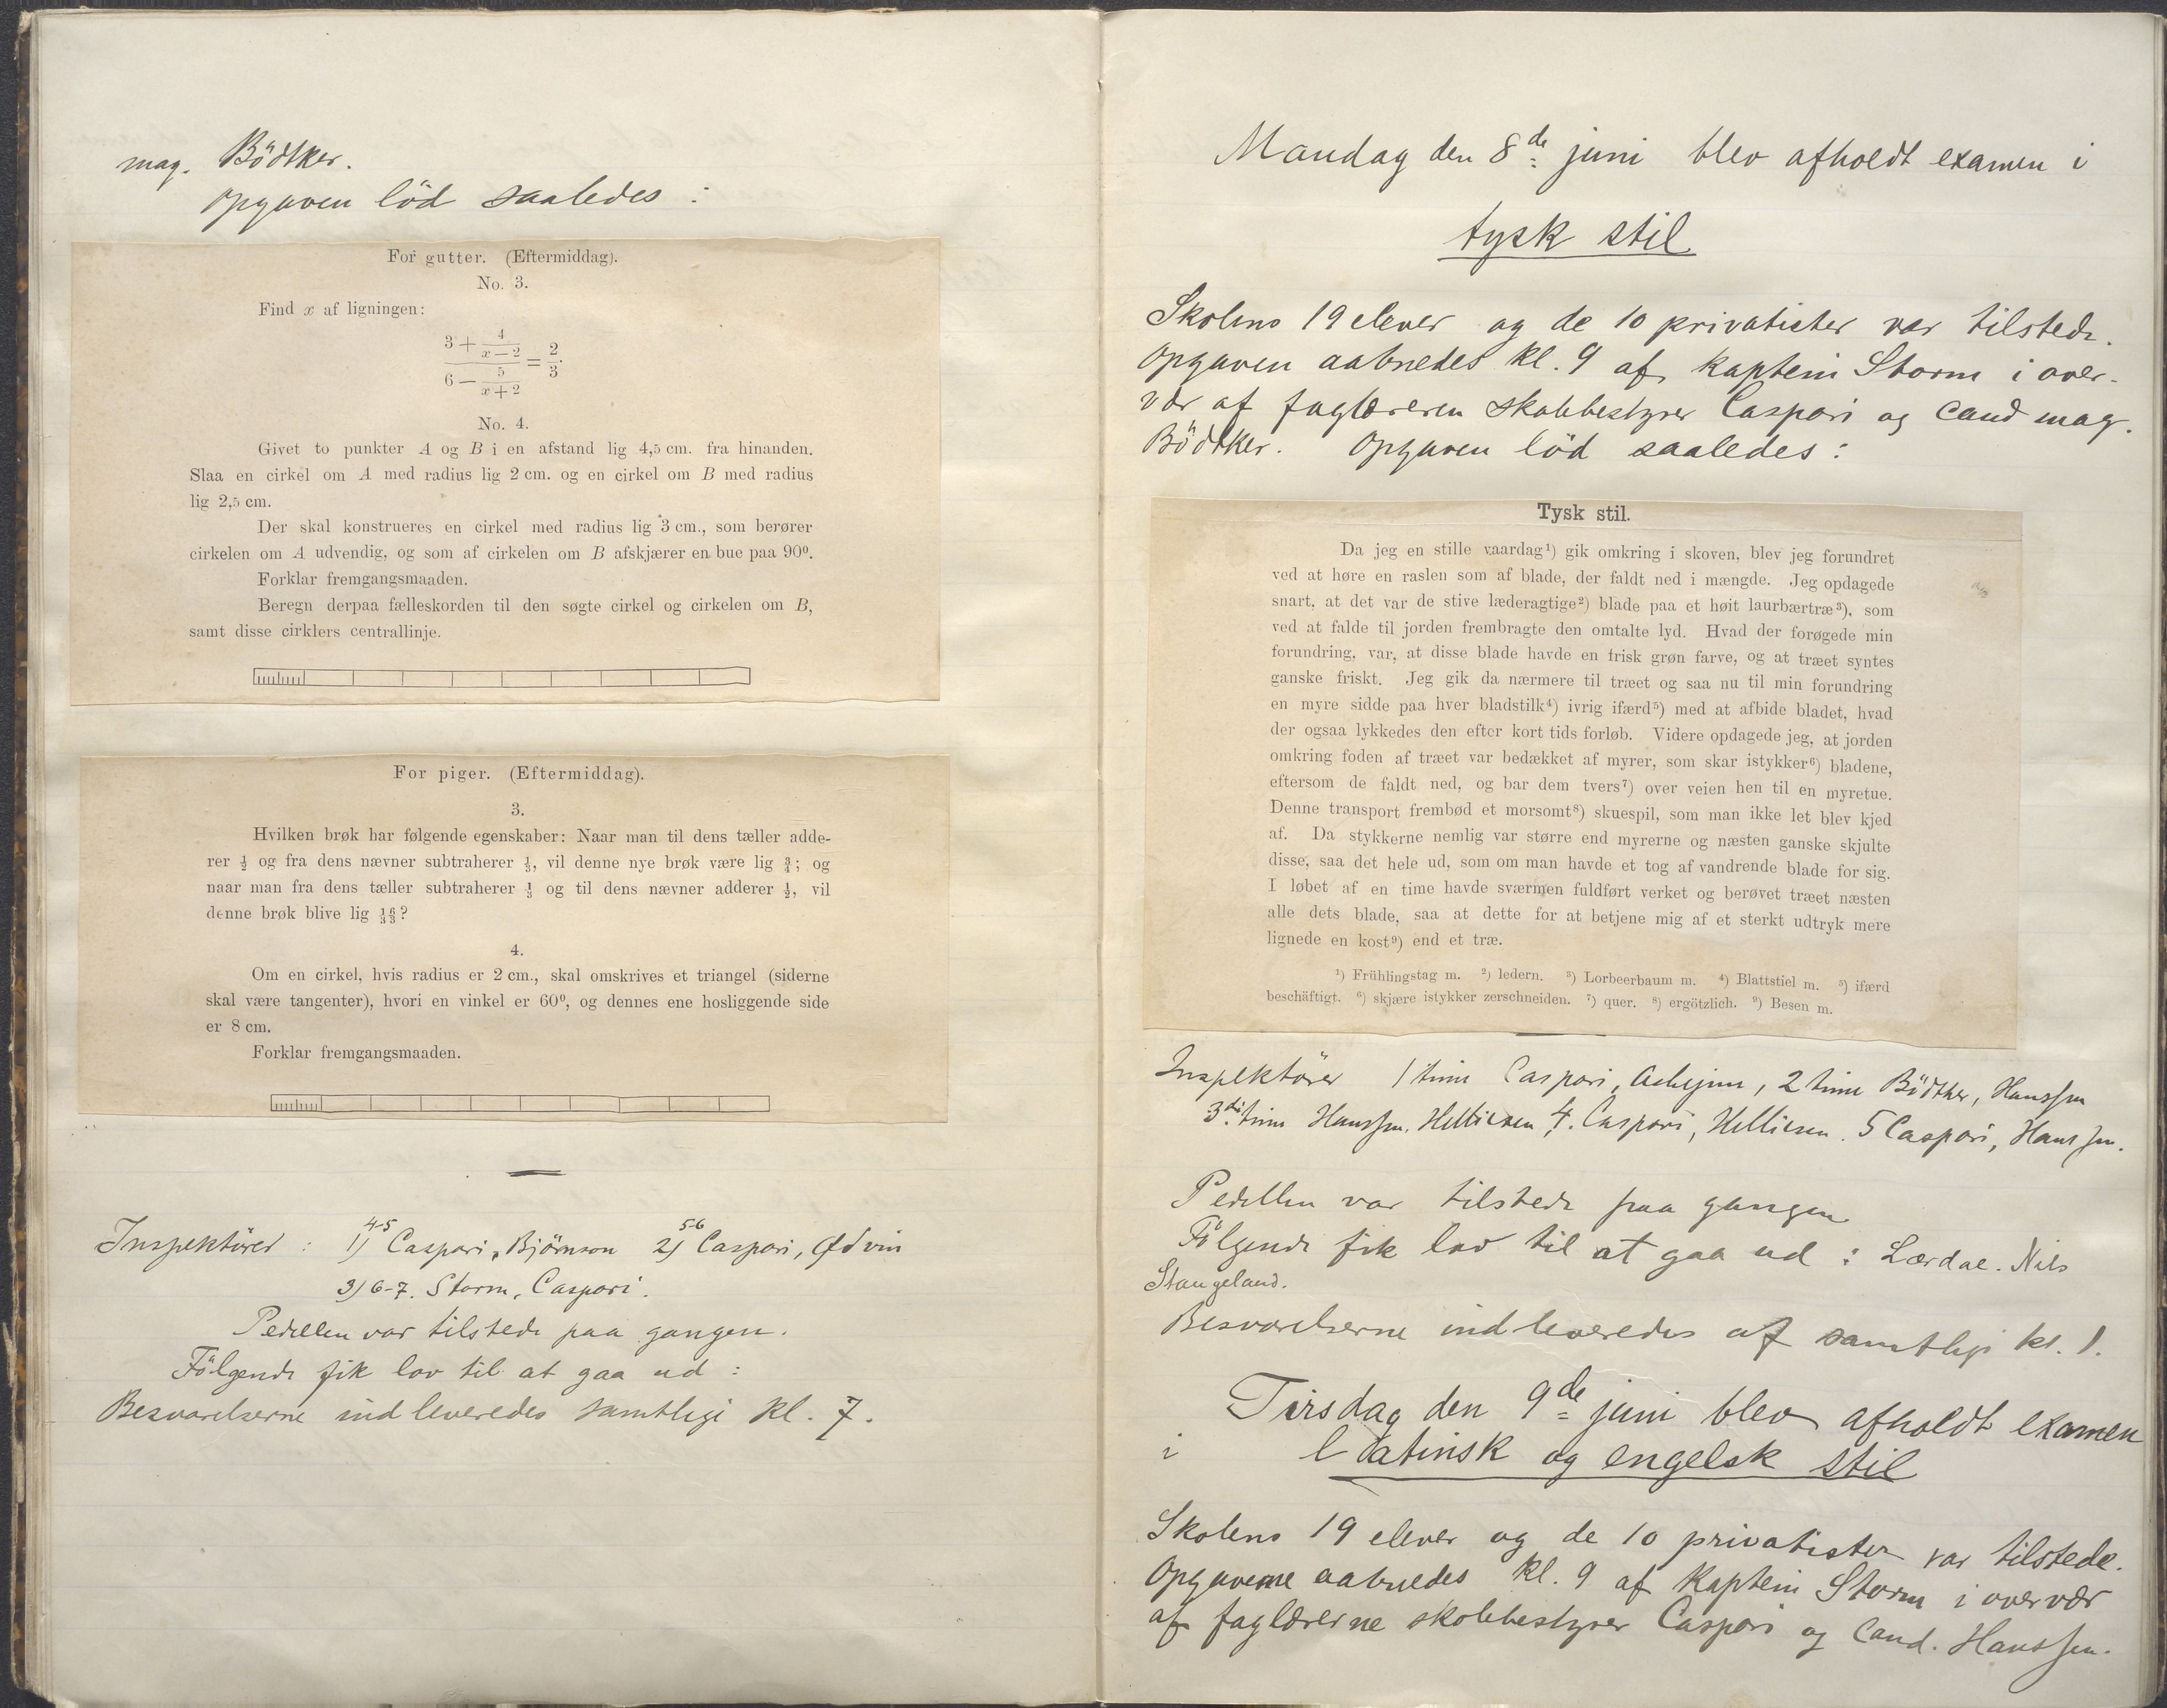 mag. Bödtker.
Opgaven löd saaledes :
For gutter. (Eftermiddag).
No. 3.
Find x af ligningen:
3 + 4/(x — 2)
6 — 5/(x + 2) = 2/3.
No. 4.
Givet to punkter A og B i en afstand lig 4,5 cm. fra hinanden.
Slaa en cirkel om A med radius lig 2 cm. og en cirkel om B med radius
lig 2,5 cm.
Der skal konstrueres en cirkel med radius lig 3 cm., som berører
cirkelen om A udvendig, og som af cirkelen om B afskjærer en bue paa 90⁰.
Forklar fremgangsmaaden.
Beregn derpaa fælleskorden til den søgte cirkel og cirkelen om B,
samt disse cirklers centrallinje.
For piger. (Eftermiddag).
3.
Hvilken brøk har følgende egenskaber: Naar man til dens tæller adde-
rer ½ og fra dens nævner subtraherer ⅓, vil denne nye brøk være lig ¾; og
naar man fra dens tæller subtraherer ⅓ og til dens nævner adderer ½, vil
denne brøk blive lig 16/33?
4.
Om en cirkel, hvis radius er 2 cm., skal omskrives et triangel (siderne
skal være tangenter), hvori en vinkel er 60⁰, og dennes ene hosliggende side
er 8 cm.
Forklar fremgangsmaaden.
Inspektörer : 1) 4-5 Caspari, Björnson 2) 5-6 Caspari, Ødvin
3) 6-7. Storm, Caspari.
Pedellen var tilstede paa gangen.
Fölgende fik lov til at gaa ud :
Besvarelserne indleveredes samtlige kl. 7.
Mandag den 8de juni blev afholdt examen i
tysk stil
Skolens 19 elever og de 10 privatister var tilstede.
Opgaven aabnedes kl. 9 af kaptein Storm i over-
vær af faglæreren skolebestyrer Caspari og cand mag.
Bödtker. Opgaven löd saaledes :
Tysk stil.
Da jeg en stille vaardag¹) gik omkring i skoven, blev jeg forundret
ved at høre en raslen som af blade, der faldt ned i mængde. Jeg opdagede
snart, at det var de stive læderagtige²) blade paa et høit laurbærtræ³), som
ved at falde til jorden frembragte den omtalte lyd. Hvad der forøgede min
forundring, var, at disse blade havde en frisk grøn farve, og at træet syntes
ganske friskt. Jeg gik da nærmere til træet og saa nu til min forundring
en myre sidde paa hver bladstilk⁴) ivrig ifærd⁵) med at afbide bladet, hvad
der ogsaa lykkedes den efter kort tids forløb. Videre opdagede jeg, at jorden
omkring foden af træet var bedækket af myrer, som skar istykker⁶) bladene,
eftersom de faldt ned, og bar dem tvers⁷) over veien hen til en myretue.
Denne transport frembød et morsomt⁸) skuespil, som man ikke let blev kjed
af. Da stykkerne nemlig var større end myrerne og næsten ganske skjulte
disse, saa det hele ud, som om man havde et tog af vandrende blade for sig.
I løbet af en time havde sværmen fuldført verket og berøvet træet næsten
alle dets blade, saa at dette for at betjene mig af et sterkt udtryk mere
lignede en kost⁹) end et træ.
¹) Frühlingstag m. ²) ledern. ³) Lorbeerbaum m. ⁴) Blattstiel m. ⁵) ifærd
beschäftigt. ⁶) skjære istykker zerschneiden. ⁷) quer. ⁸) ergötzlich. ⁹) Besen m.
Inspektörer 1 time Caspari, 2 time Bödtker, Hanssen
3die time Hanssen, Helliesen, 4. Caspari, Helliesen. 5 Caspari, Hanssen.
Pedellen var tilstede paa gangen
Fölgende fik lov til at gaa ud : Lærdal. Nils
Stangeland.
Besvarelserne indleveredes af samtlige kl. 1.
Tirsdag den 9de juni blev afholdt examen
i latinsk og engelsk stil
Skolens 19 elever og de 10 privatister var tilstede.
Opgaverne aabnedes kl. 9 af kaptein Storm i overvær
af faglærerne skolebestyrer Caspari og Cand. Hanssen.